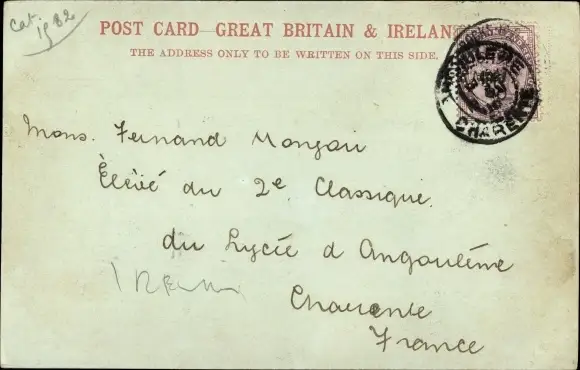 Cat. 1982
POST CARD—GREAT BRITAIN & IRELAN
THE ADDRESS ONLY TO BE WRITTEN ON THIS SIDE.
CHARENTE
Mons. Fernand Monzou
Élève du 2e Classique.
du Lycée d Angoulême
Charente
France